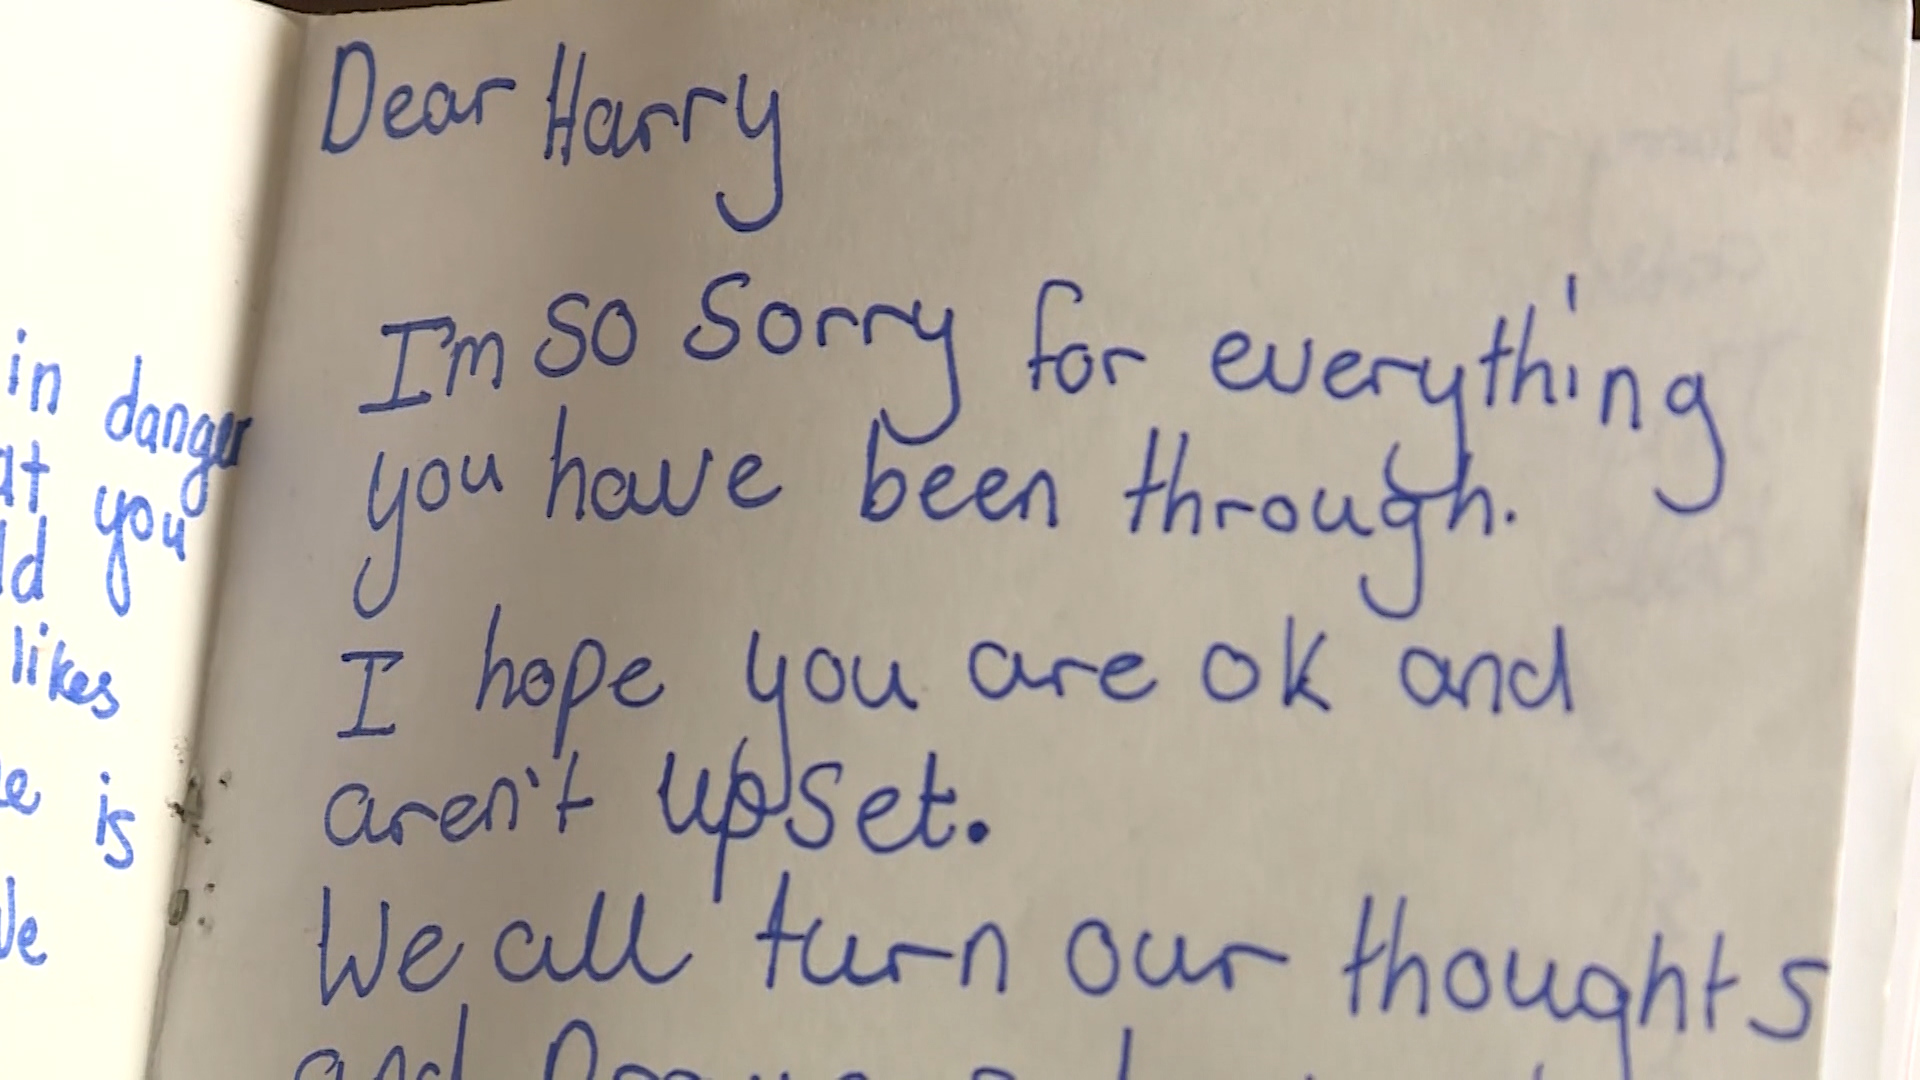 in danger
you
likes
is
Dear Harry
I'm so sorry for everything
you have been through.
I hope you are ok and
aren't upset.
We all turn our thoughts
and